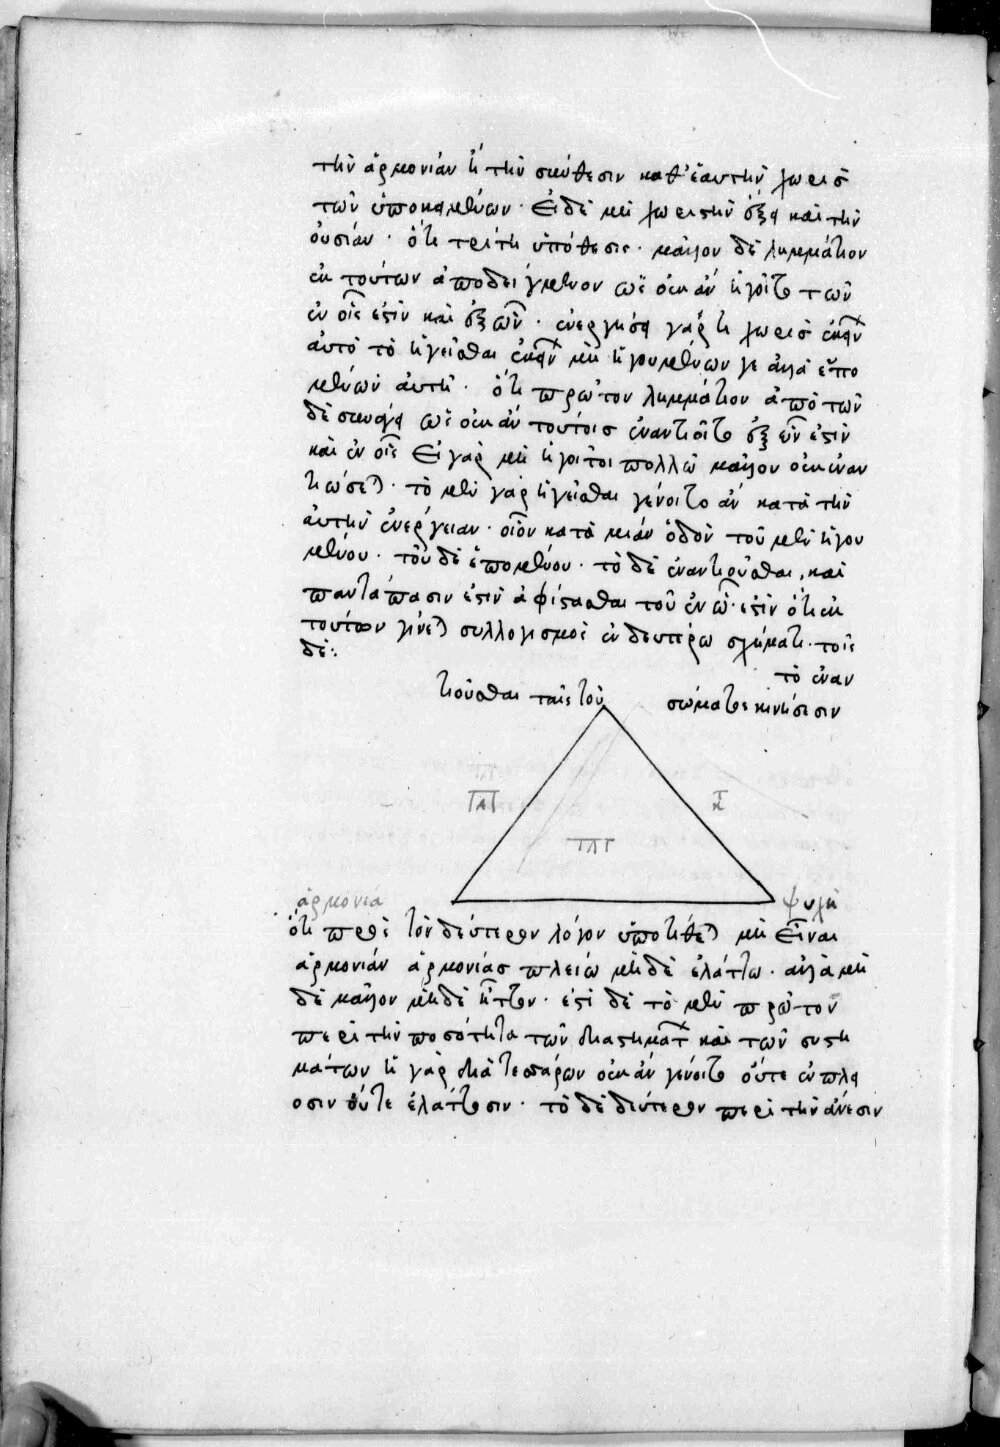 τὴν ἁρμονίαν ἢ τὴν σύνθεσιν καθ' ἑαυτὴν χωρὶς
τῶν ὑποκειμένων · Εἰ δὲ μὴ χωριστὴν ἕξει καὶ τὴν
οὐσίαν · ὅτι τρίτη ὑπόθεσις · μᾶλλον δὲ λημμάτιον
ἐκ τούτων ἀποδειγμένον ὡς οὐκ ἂν ἡγοῖτο τῶν
ἐν οἷς ἐστὶν καὶ ἐξ ὧν · ἐνεργήσει γάρ τι χωρὶς ἐκείνων
αὐτὸ τὸ ἡγεῖσθαι ἐκείνων μὴ ἡγουμένων γε ἀλλὰ ἑπο
μένων αὐτῆ · ὅτι πρῶτον λημμάτιον ἀπὸ τῶν
δὲ συνάγει ὡς οὐκ ἂν τούτοις ἐναντιοῖτο ἐξ ὧν ἐστὶν
καὶ ἐν οἷς Εἰ γὰρ μὴ ἡγοῖτο πολλῶ μᾶλλον οὐκ ἐναν
τιώσεται · τὸ μὲν γὰρ ἡγεῖσθαι γένοιτο ἂν κατὰ τὴν
αὐτὴν ἐνέργειαν · οἷον κατὰ μίαν ὁδὸν τοῦ μὲν ἡγου
μένου · τοῦ δὲ ἑπομένου · τὸ δὲ ἐναντιοῦσθαι, καὶ
παντάπασιν ἐστὶν ἀφίστασθαι τοῦ ἐν ὧ ἐστὶν ὅτι ἐκ
τούτων γίνεται συλλογισμὸς ἐν δευτέρω σχήματι · τοῖς
δέ:
τὸ ἐναν
τιοῦσθαι ταῖς τοῦ σώματος κινήσεσιν
ἁρμονία ψυχή
ὅτι πρὸς τὸν δεύτερον λόγον ὑποτίθεται μὴ εἶναι
ἁρμονίαν ἁρμονίας πλείω μηδὲ ἐλάττω · ἀλλὰ μὴ
δὲ μᾶλλον μηδὲ ἧττον · ἔστι δὲ τὸ μὲν πρῶτον
περὶ τὴν ποσότητα τῶν διαστημάτων καὶ τῶν συστη
μάτων ἡ γὰρ διὰ τεσσάρων οὐκ ἂν γένοιτο οὔτε ἐν πλεί
οσιν οὔτε ἐλάττοσιν · τὸ δὲ δεύτερον περὶ τὴν ἄνεσιν